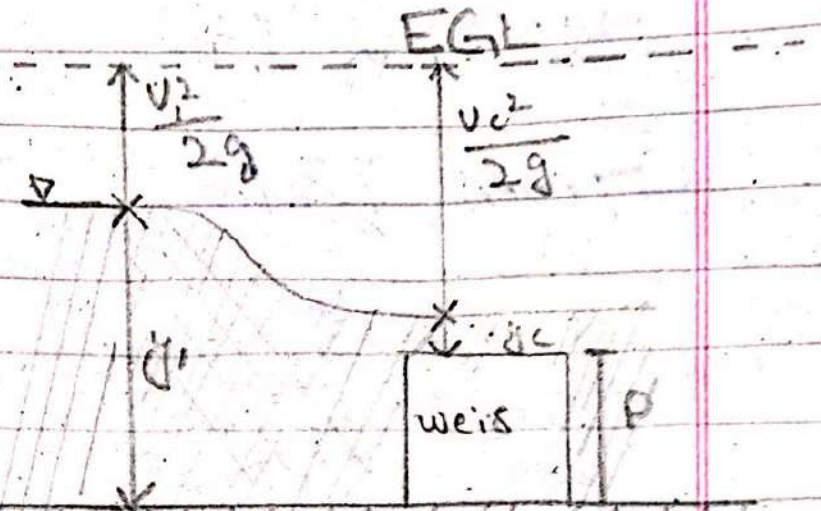 EGL
V₁²/2g
Vc²/2g
y₁
yc
weir
P